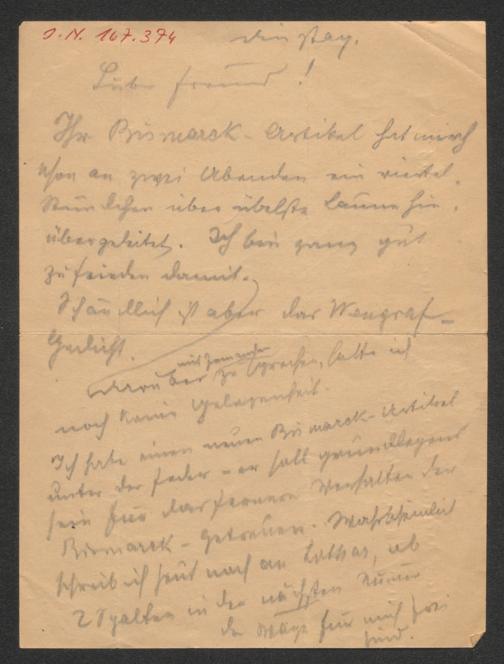 J. N. 167.374
Dienstag.
Lieber Freund!
Ihr Bismarck-Artikel hat mich
schon an zwei Abenden ein viertel
Stündchen über übelste Laune hin-
übergeleitet. Ich bin ganz gut
zufrieden damit.
Schändlich ist aber das Wengraf-
Gedicht.
mit jemandem
Darüber zu sprechen, hatte ich
noch keine Gelegenheit.
Ich habe einen neuen Bismarck-Artikel
unter der Feder - er soll grundlegend
sein für das fernere Verhalten der
Bismarck-Getreuen. Wahrscheinlich
schreib ich heut noch an Lothar, ob
2 Spalten in der nächsten Numer
der Wage für mich frei
sind.